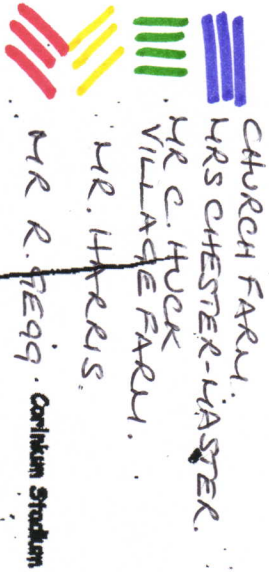 CHURCH FARM.
MRS CHESTER-MASTER.
MR C. HUCK
VILLAGE FARM.
MR. HARRIS
MR R. GEGG.
Corinium Stadium